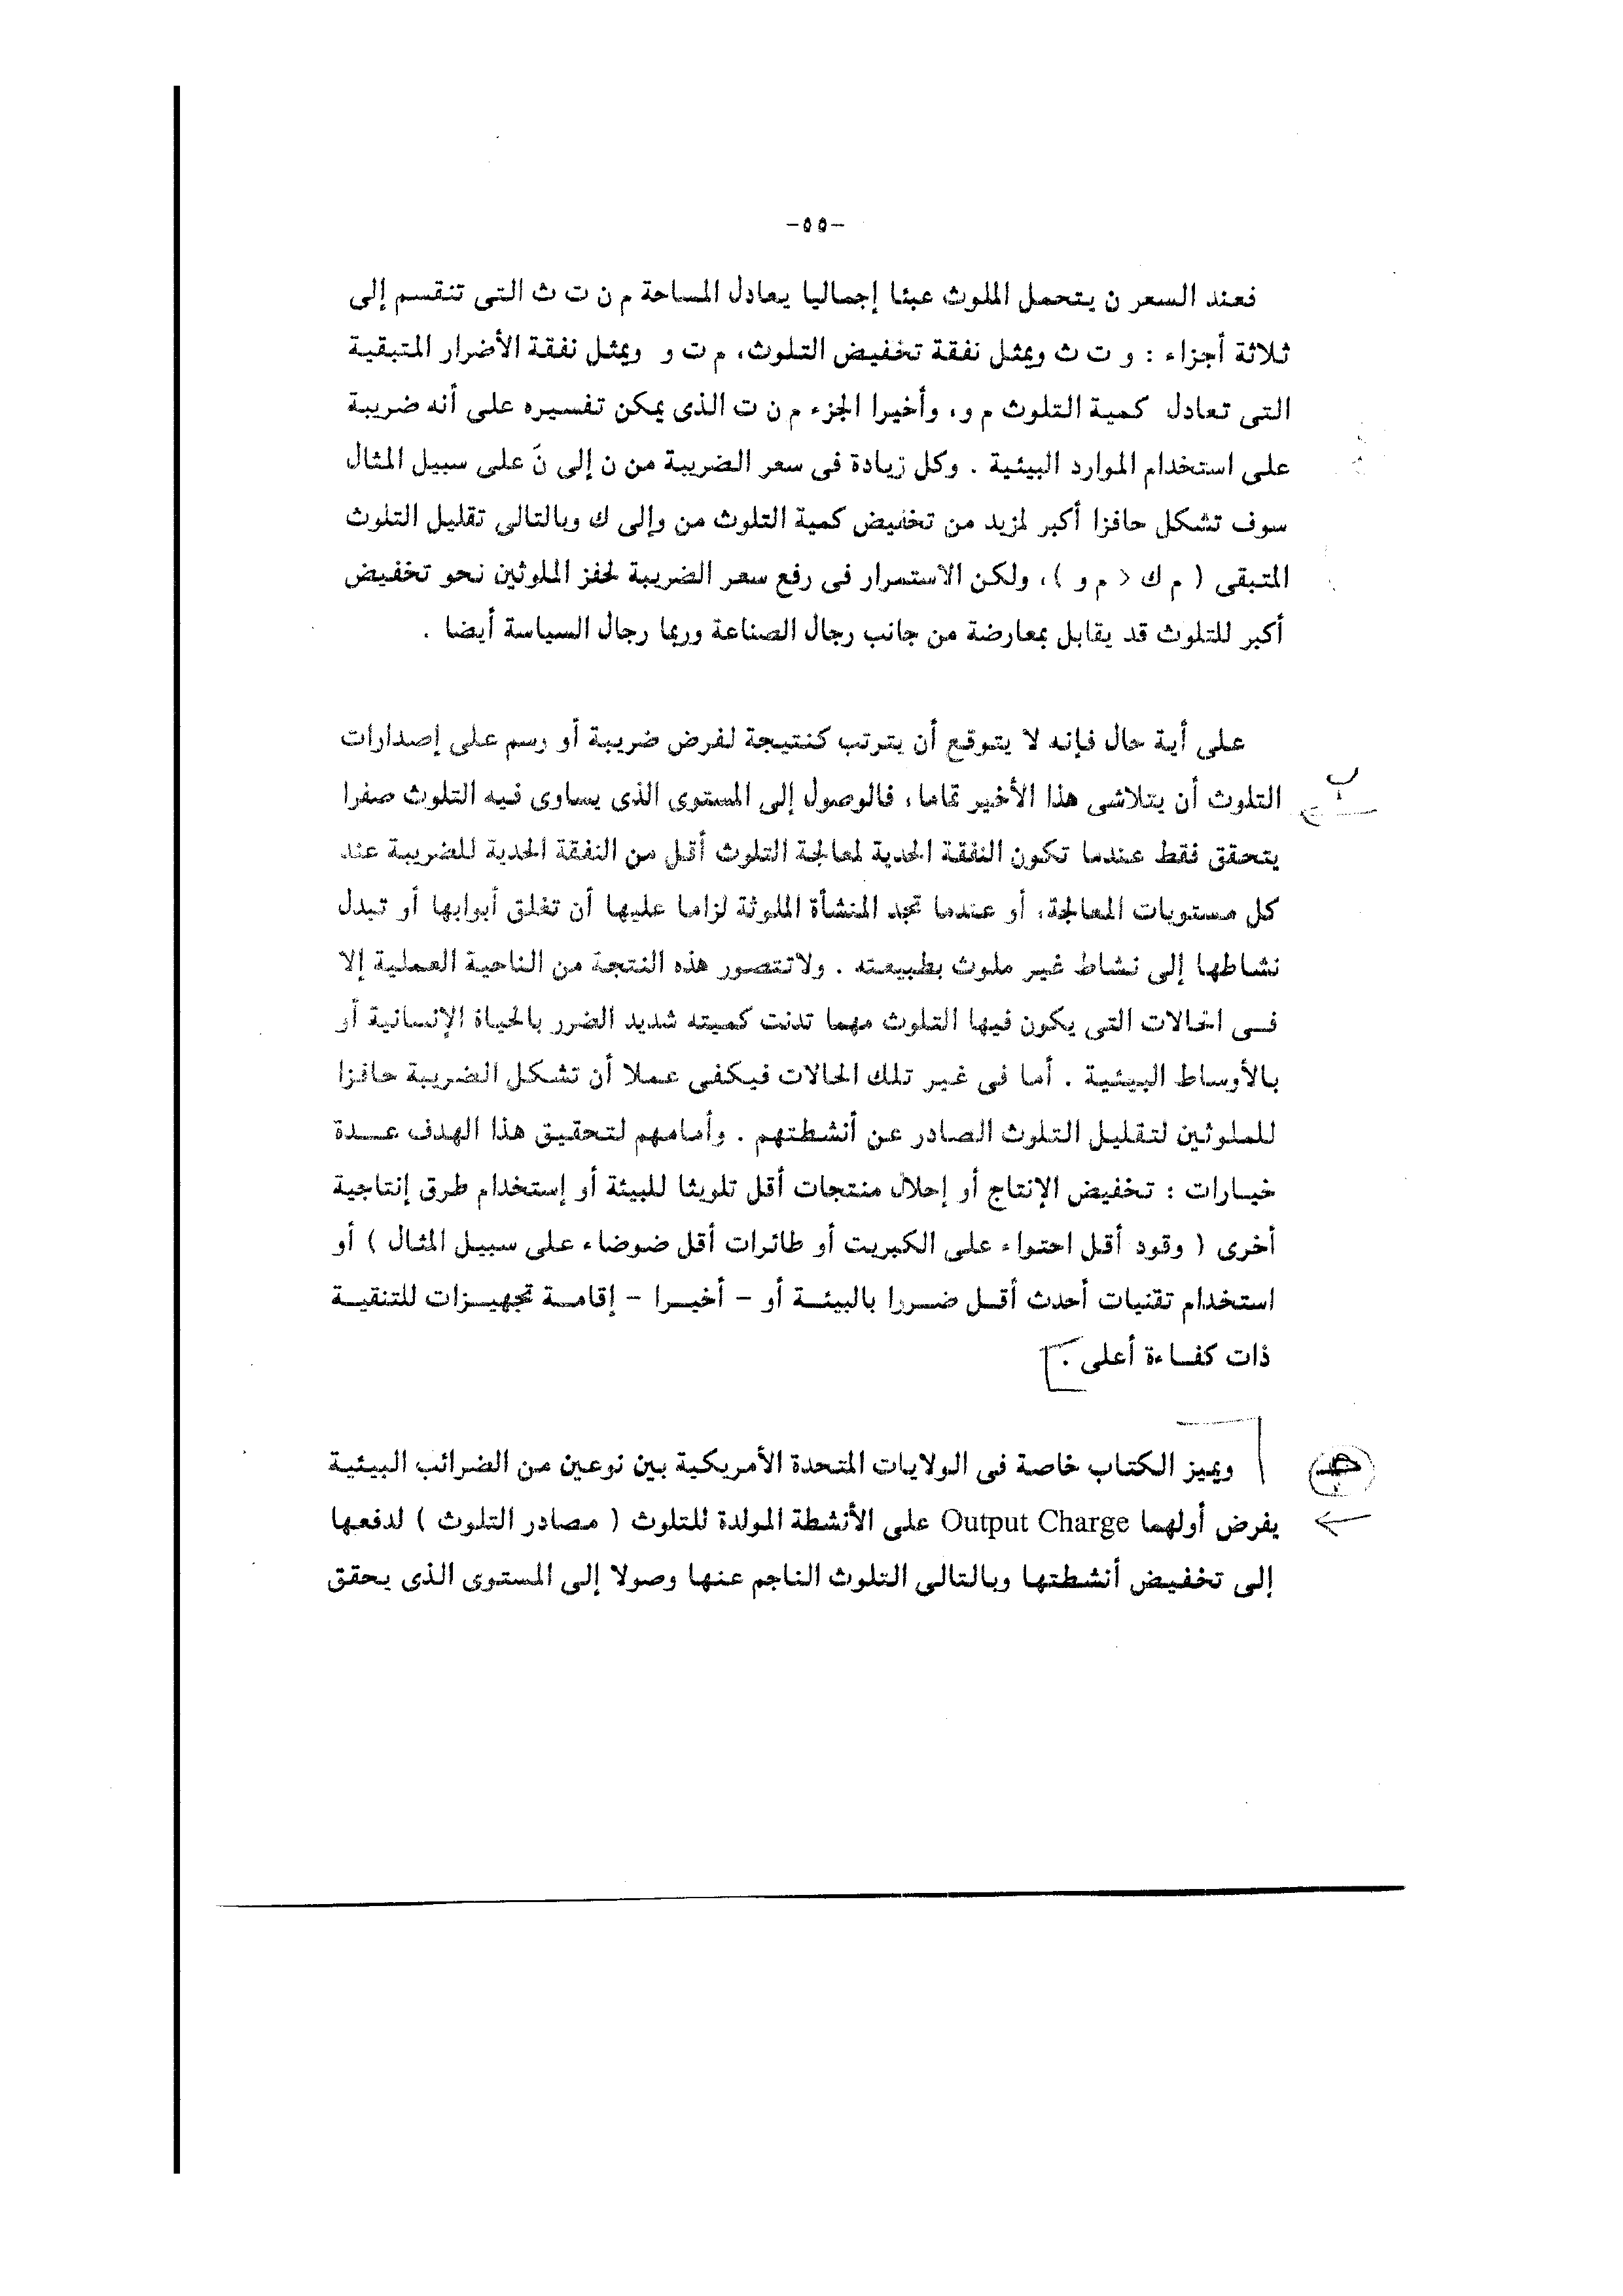 -٥٥-
فعند السعر ن يتحمل الملوث عبئا إجماليا يعادل المساحة م ن ت ث التى تنقسم إلى
ثلاثة أجزاء : و ت ث ويمثل نفقة تخفيض التلوث، م ت و ويمثل نفقة الأضرار المتبقية
التى تعادل كمية التلوث م و، وأخيرا الجزء م ن ت الذى يمكن تفسيره على أنه ضريبة
على استخدام الموارد البيئية . وكل زيادة فى سعر الضريبة من ن إلى نَ على سبيل المثال
سوف تشكل حافزا أكبر لمزيد من تخفيض كمية التلوث من وإلى ك وبالتالى تقليل التلوث
المتبقى ( م ك < م و )، ولكن الاستمرار فى رفع سعر الضريبة لحفز الملوثين نحو تخفيض
أكبر للتلوث قد يقابل بمعارضة من جانب رجال الصناعة وربما رجال السياسة أيضا .
على أية حال فإنه لا يتوقع أن يترتب كنتيجة لفرض ضريبة أو رسم على إصدارات
ب
التلوث أن يتلاشى هذا الأخير تماما، فالوصول إلى المستوى الذى يساوى فيه التلوث صفرا
يتحقق فقط عندما تكون النفقة الحدية لمعالجة التلوث أقل من النفقة الحدية للضريبة عند
كل مستويات المعالجة، أو عندما تجد المنشأة الملوثة لزاما عليها أن تغلق أبوابها أو تبدل
نشاطها إلى نشاط غير ملوث بطبيعته . ولاتتصور هذه النتجة من الناحية العملية إلا
فى الحالات التى يكون فيها التلوث مهما تدنت كميته شديد الضرر بالحياة الإنسانية أو
بالأوساط البيئية . أما فى غير تلك الحالات فيكفى عملا أن تشكل الضريبة حافزا
للملوثين لتقليل التلوث الصادر عن أنشطتهم . وأمامهم لتحقيق هذا الهدف عدة
خيارات : تخفيض الإنتاج أو إحلال منتجات أقل تلويثا للبيئة أو إستخدام طرق إنتاجية
أخرى ( وقود أقل احتواء على الكبريت أو طائرات أقل ضوضاء على سبيل المثال ) أو
استخدام تقنيات أحدث أقل ضررا بالبيئة أو - أخيرا - إقامة تجهيزات للتنقية
ذات كفاءة أعلى .
ويميز الكتاب خاصة فى الولايات المتحدة الأمريكية بين نوعين من الضرائب البيئية
يفرض أولهما Output Charge على الأنشطة المولدة للتلوث ( مصادر التلوث ) لدفعها
إلى تخفيض أنشطتها وبالتالى التلوث الناجم عنها وصولا إلى المستوى الذى يحقق